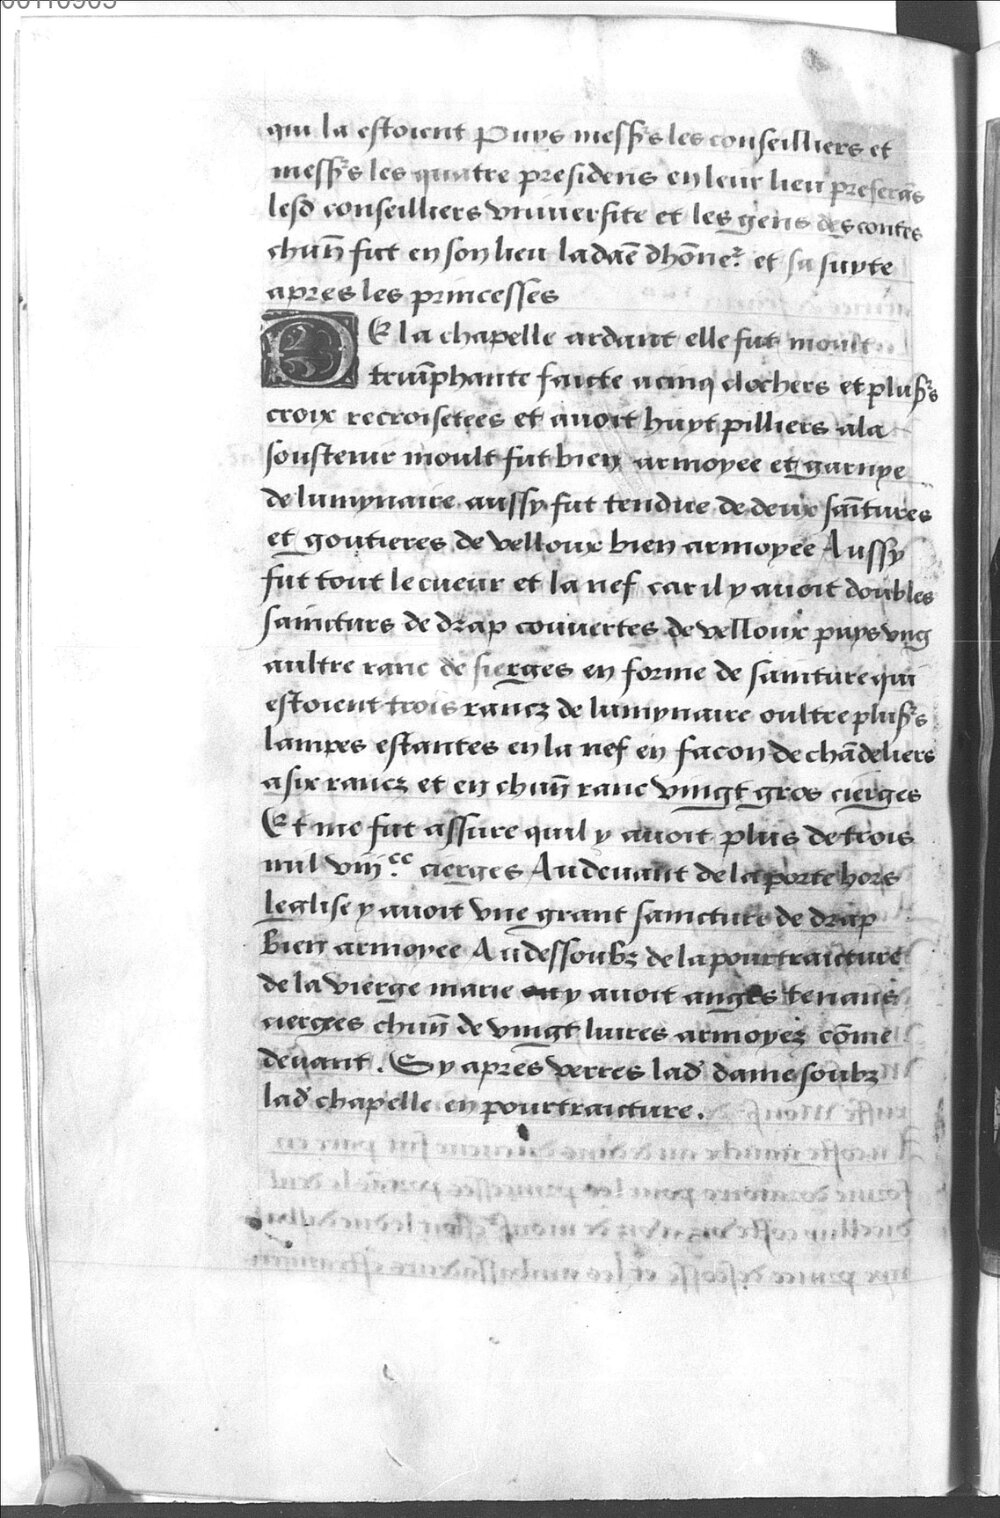 qui la estoient Puys messrs les conseilliers et
messrs les quatre presidens en leur lieu preferās
lesd conseilliers vniuersite et les gens des contes
chun̄ fut en son lieu la daē dhōner et sa suyte
apres les princesses
DE la chapelle ardant elle fut moult
triūphante faicte a cinq clochers et plusrs
croix recroisetees et auoit huyt pilliers a la
soustenir moult fut bien armoyee et garnye
de lumynaire aussy fut tendue de deux saītures
et goutieres de velloux bien armoyee Aussy
fut tout le cueur et la nef car il y auoit doubles
sainctures de drap couuertes de velloux puys vng
aultre ranc de sierges en forme de sainture qui
estoient trois rancz de lumynaire oultre plusrs
lampes estantes en la nef en facon de chādeliers
a six rancz et en chun̄ ranc vingt gros cierges
Et me fut assure quil y auoit plus de trois
mil viij.cc cierges Au deuant de la porte hors
leglise y auoit vne grant saincture de drap
Bien armoyee Au dessoubz de la pourtraicture
de la vierge marie y auoit anges tenans
cierges chun̄ de vingt liures armoyez cōme
deuant. Sy apres verres lad dame soubz
lad chapelle en pourtraicture.